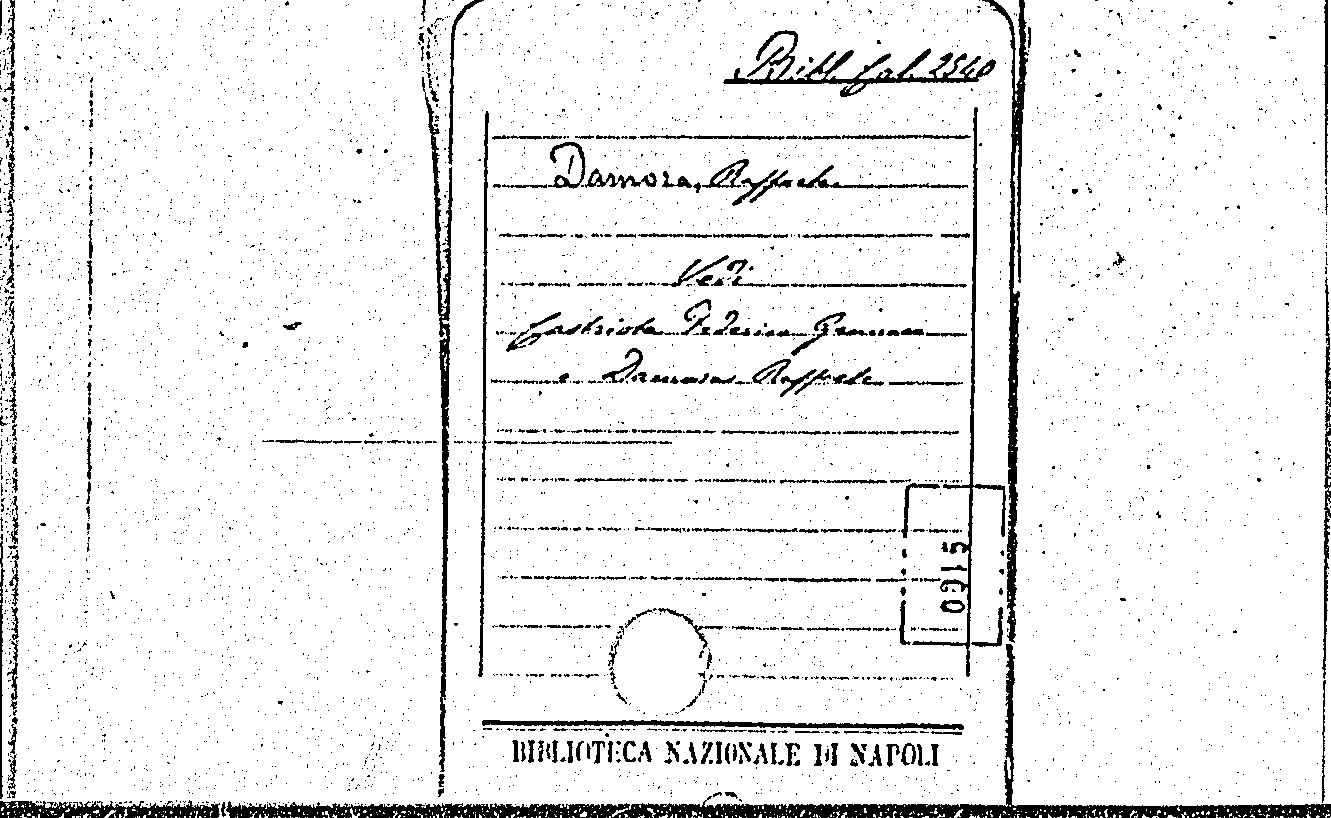 Bibl. Cal. 2540
Damora, Raffaele
Vedi
Castriota Federico Gennaro
e Damora Raffaele
0015
BIBLIOTECA NAZIONALE DI NAPOLI